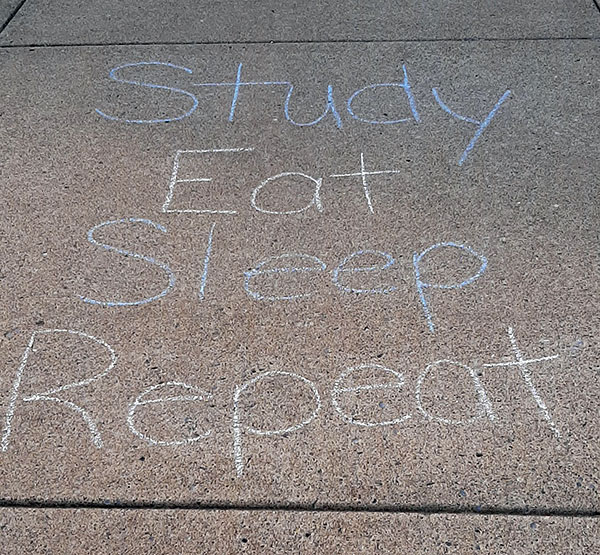 Study
Eat
Sleep
Repeat